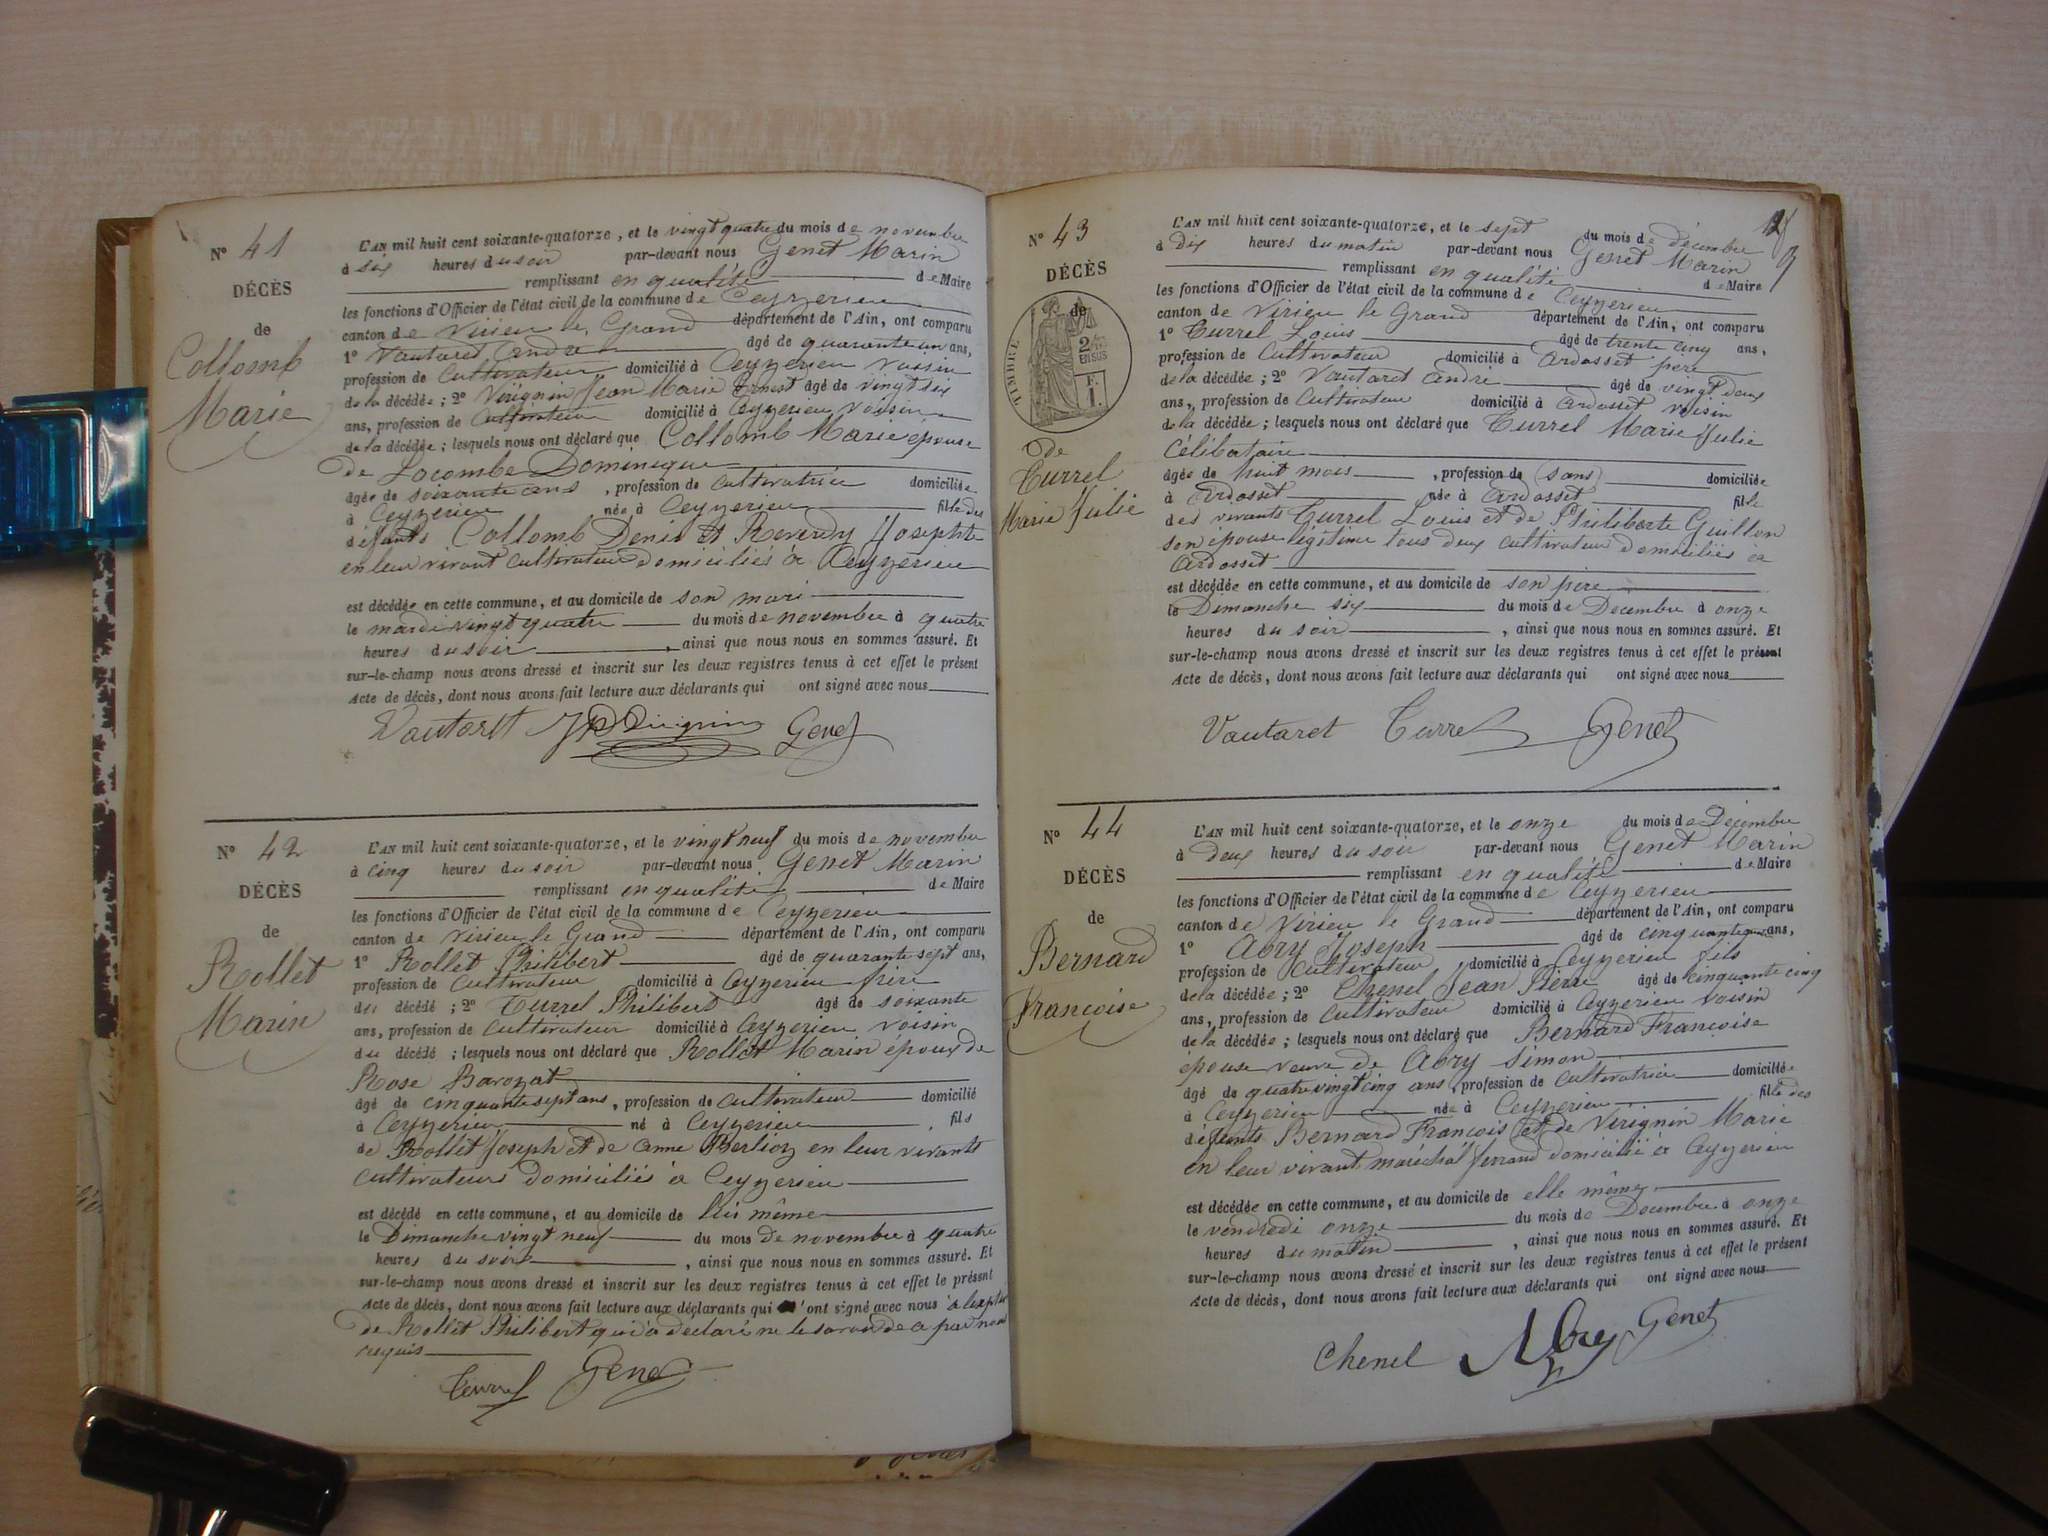 N° 41
DÉCÈS
de
Collomb
Marie
L'AN mil huit cent soixante-quatorze, et le vingt quatre du mois de novembre
à six heures du soir par-devant nous Genet Marin
remplissant en qualité de Maire
les fonctions d'Officier de l'état civil de la commune de Ceyzerieu
canton de Virieu le Grand département de l'Ain, ont comparu
1° Vautaret André âgé de quarante un ans,
profession de Cultivateur domicilié à Ceyzerieu voisin
de la décédée; 2° Virignin Jean Marie Ernest âgé de vingt six
ans, profession de Cultivateur domicilié à Ceyzerieu voisin
de la décédée; lesquels nous ont déclaré que Collomb Marie épouse
de Lacombe Dominique
âgée de soixante ans, profession de Cultivatrice domiciliée
à Ceyzerieu née à Ceyzerieu fille des
défunts Collomb Denis et Reverdy Josephte
en leur vivant cultivateurs domiciliés à Ceyzerieu
est décédée en cette commune, et au domicile de son mari
le mardi vingt quatre du mois de novembre à quatre
heures du soir, ainsi que nous nous en sommes assuré. Et
sur-le-champ nous avons dressé et inscrit sur les deux registres tenus à cet effet le présent
Acte de décès, dont nous avons fait lecture aux déclarants qui ont signé avec nous
Vautaret Virignin Genet
N° 42
DÉCÈS
de
Rollet
Marin
L'AN mil huit cent soixante-quatorze, et le vingt neuf du mois de novembre
à cinq heures du soir par-devant nous Genet Marin
remplissant en qualité de Maire
les fonctions d'Officier de l'état civil de la commune de Ceyzerieu
canton de Virieu le Grand département de l'Ain, ont comparu
1° Rollet Philibert âgé de quarante sept ans,
profession de Cultivateur domicilié à Ceyzerieu frère
du décédé; 2° Turrel Philibert âgé de soixante
ans, profession de Cultivateur domicilié à Ceyzerieu voisin
du décédé; lesquels nous ont déclaré que Rollet Marin époux de
Rose Barozat
âgé de cinquante sept ans, profession de cultivateur domicilié
à Ceyzerieu né à Ceyzerieu, fils
de Rollet Joseph et de Anne Berlioz en leur vivants
cultivateurs domiciliés à Ceyzerieu
est décédé en cette commune, et au domicile de lui même
le Dimanche vingt neuf du mois de novembre à quatre
heures du soir, ainsi que nous nous en sommes assuré. Et
sur-le-champ nous avons dressé et inscrit sur les deux registres tenus à cet effet le présent
Acte de décès, dont nous avons fait lecture aux déclarants qui ont signé avec nous
de Rollet Philibert qui a déclaré ne le savoir de a par nous
requis
Turrel Genet
N° 43
DÉCÈS
de
TIMBRE
2
EN SUS
F.
1.
de
Turrel
Marie Julie
L'AN mil huit cent soixante-quatorze, et le sept du mois de décembre
à dix heures du matin par-devant nous Genet Marin
remplissant en qualité de Maire
les fonctions d'Officier de l'état civil de la commune de Ceyzerieu
canton de Virieu le Grand département de l'Ain, ont comparu
1° Turrel Louis, âgé de trente cinq ans,
profession de Cultivateur domicilié à Ardosset père
de la décédée; 2° Vautaret André âgé de vingt deux
ans, profession de Cultivateur domicilié à Ardosset voisin
de la décédée; lesquels nous ont déclaré que Turrel Marie Julie
Célibataire
âgée de huit mois, profession de (sans) domiciliée
à Ardosset née à Ardosset fille
des vivants Turrel Louis et de Philiberte Guillon
son épouse légitime tous deux cultivateur domiciliés à
Ardosset
est décédée en cette commune, et au domicile de son père
le Dimanche six du mois de Decembre à onze
heures du soir, ainsi que nous nous en sommes assuré. Et
sur-le-champ nous avons dressé et inscrit sur les deux registres tenus à cet effet le présent
Acte de décès, dont nous avons fait lecture aux déclarants qui ont signé avec nous
Vautaret Turrel Genet
N° 44
DÉCÈS
de
Bernard
Francoise
L'AN mil huit cent soixante-quatorze, et le onze du mois de Décembre
à Deux heures du soir par-devant nous Genet Marin
remplissant en qualité de Maire
les fonctions d'Officier de l'état civil de la commune de Ceyzerieu
canton de Virieu le Grand département de l'Ain, ont comparu
1° Abry Joseph âgé de ans,
profession de Cultivateur domicilié à Ceyzerieu fils
de la décédée; 2° Chenel Jean Pierre âgé de cinquante cinq
ans, profession de Cultivateur domicilié à Ceyzerieu voisin
de la décédée; lesquels nous ont déclaré que Bernard Francoise
épouse veuve de Abry Simon
âgé de quatre vingt cinq ans, profession de Cultivatrice domiciliée
à Ceyzerieu née à Ceyzerieu fille des
défunts Bernard François et de Virignin Marie
en leur vivant maréchal ferrand domicilié à Ceyzerieu
est décédée en cette commune, et au domicile de elle même
le vendredi onze du mois de Decembre à onze
heures du matin, ainsi que nous nous en sommes assuré. Et
sur-le-champ nous avons dressé et inscrit sur les deux registres tenus à cet effet le présent
Acte de décès, dont nous avons fait lecture aux déclarants qui ont signé avec nous
Chenel Abry Genet